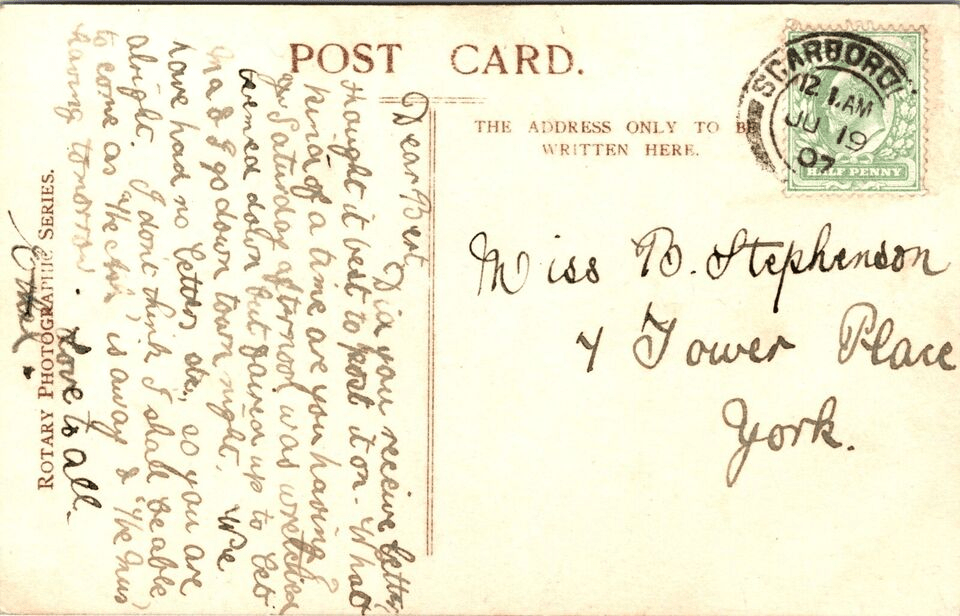 POST CARD.
THE ADDRESS ONLY TO BE
WRITTEN HERE.
SCARBORO
12 1.AM
JU 19
07
HALF PENNY
Miss B. Stephenson
4 Tower Place
York.
Dear Bert Did you receive letter,
thought it best to post it on. What
kind of a time are you having?
Saturday afternoon was wretched
down but faired up to let
Mad & I go down town night. We
have had no letters etc, so you are
alright. I don't think I shall be able
to come as "the is away & the
having tomorrow.
Love to All.
ROTARY PHOTOGRAPHIC SERIES.